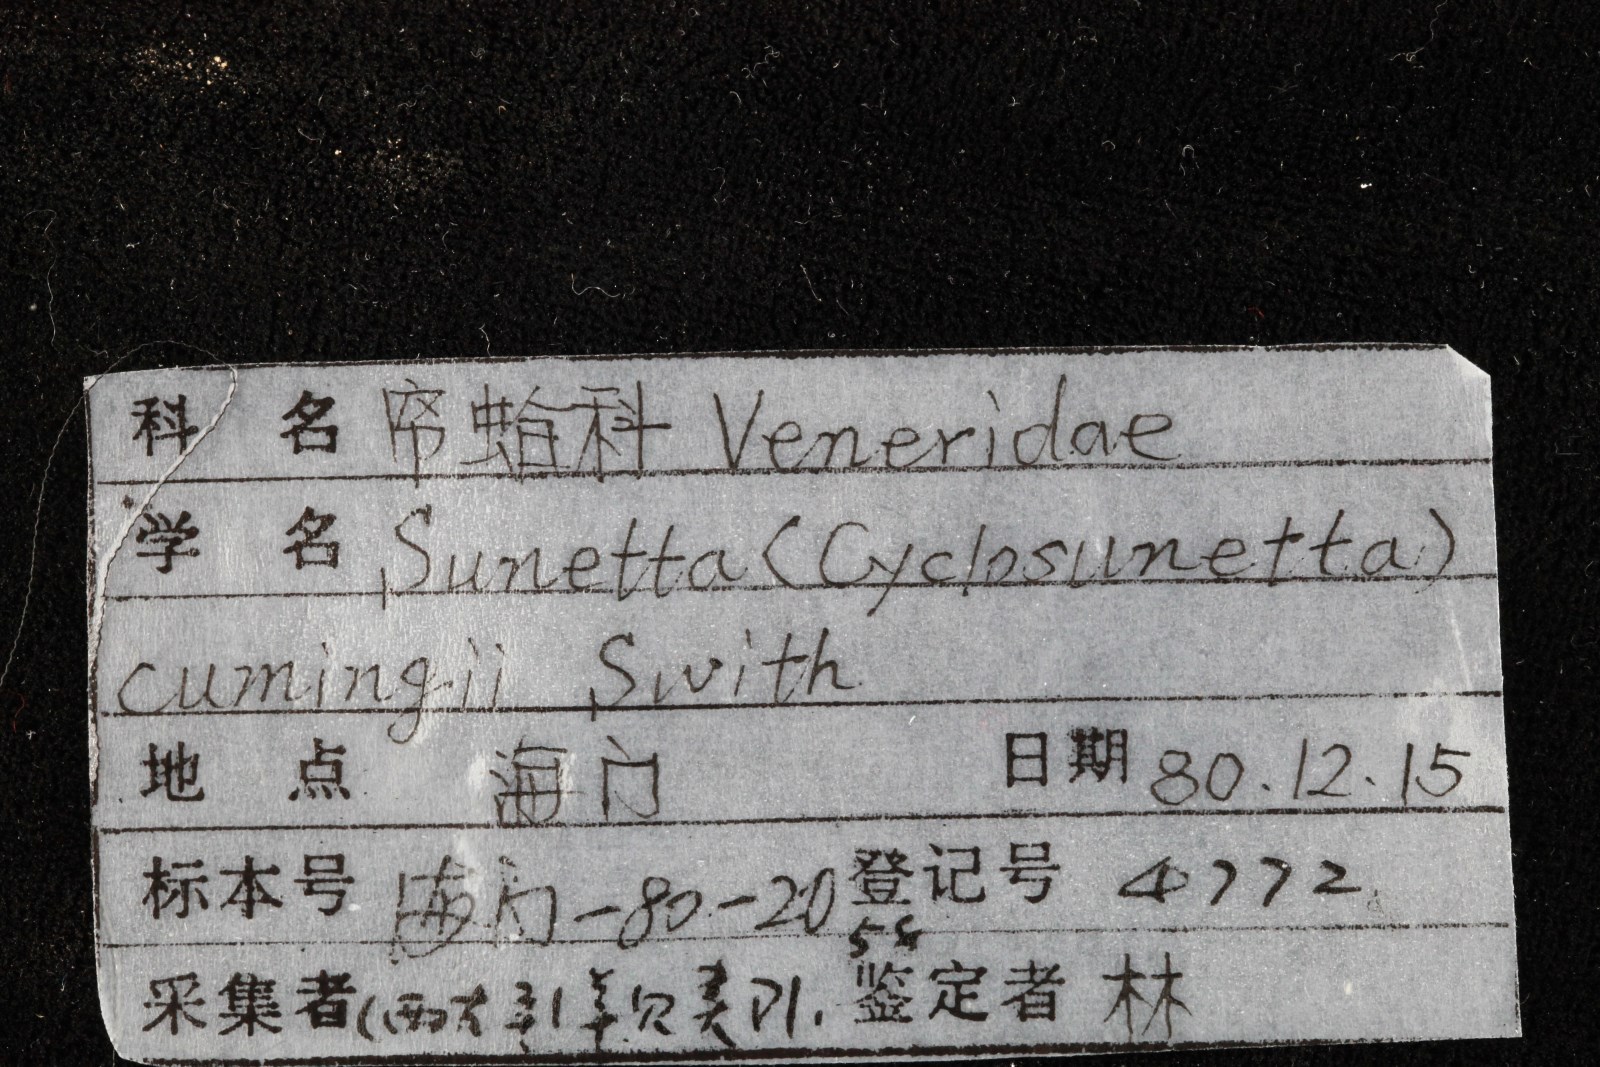 科 名 帘蛤科 Veneridae
学 名 Sunetta (Cyclosunetta)
cumingii Swith
地 点 海门 日期 80.12.15
标本号 海门-80-20 登记号 4772
58
采集者 鉴定者 林